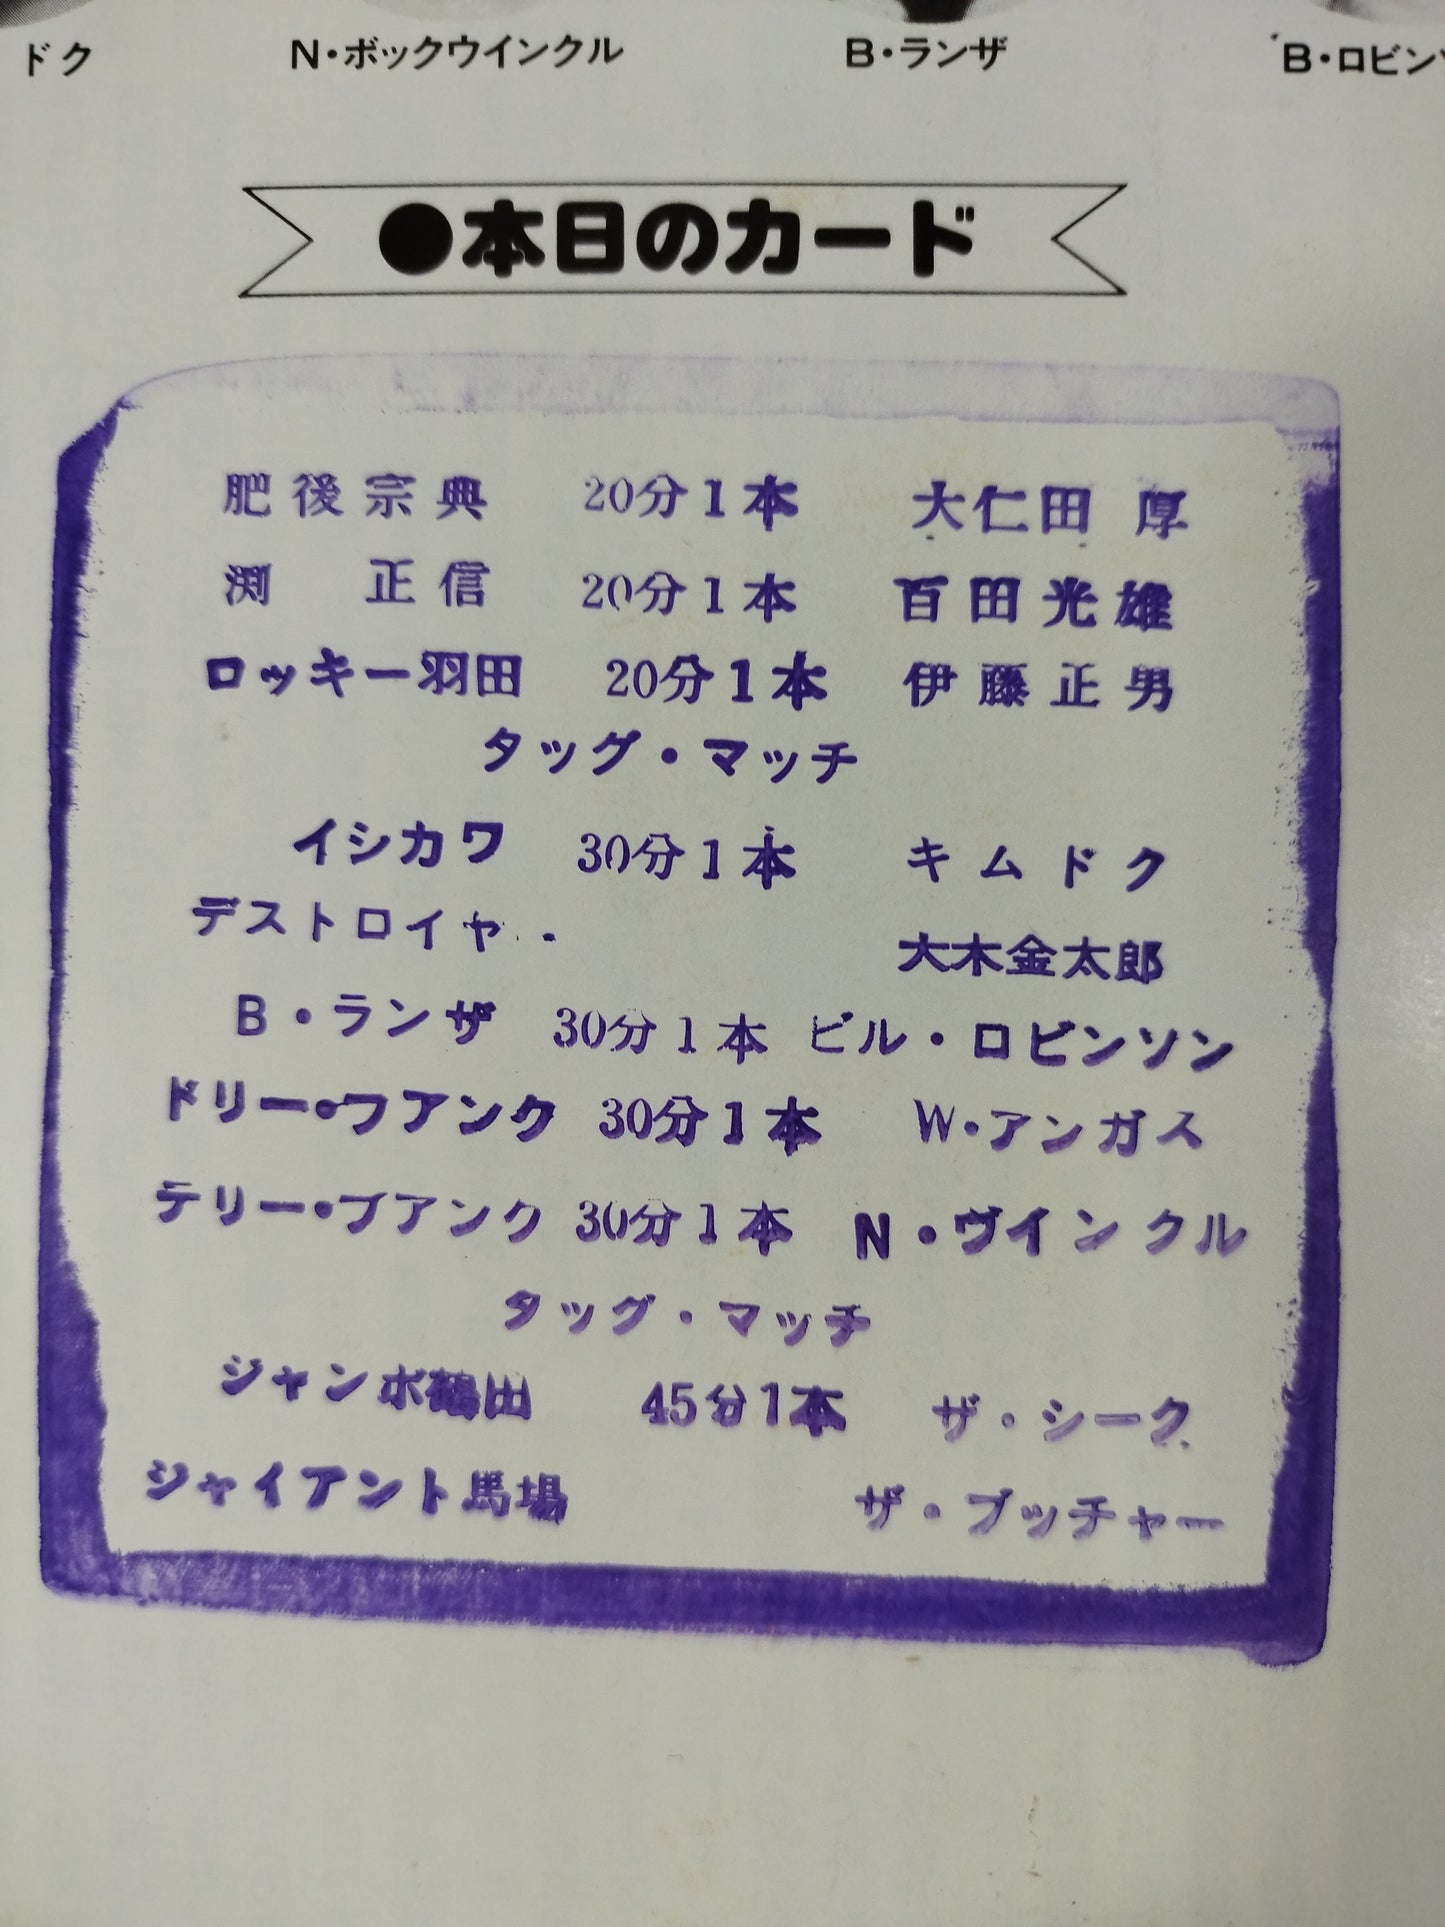 ドク N・ボックウインクル B・ランザ B・ロビン
●本日のカード
肥後宗典 20分1本 大仁田 厚
渕 正信 20分1本 百田光雄
ロッキー羽田 20分1本 伊藤正男
タッグ・マッチ
イシカワ 30分1本 キムドク
デストロイヤ・ 大木金太郎
B・ランザ 30分1本 ビル・ロビンソン
ドリー・フアンク 30分1本 W・アンガス
テリー・フアンク 30分1本 N・ヴインクル
タッグ・マッチ
ジャンボ鶴田 45分1本 ザ・シーク
ジャイアント馬場 ザ・ブッチャー